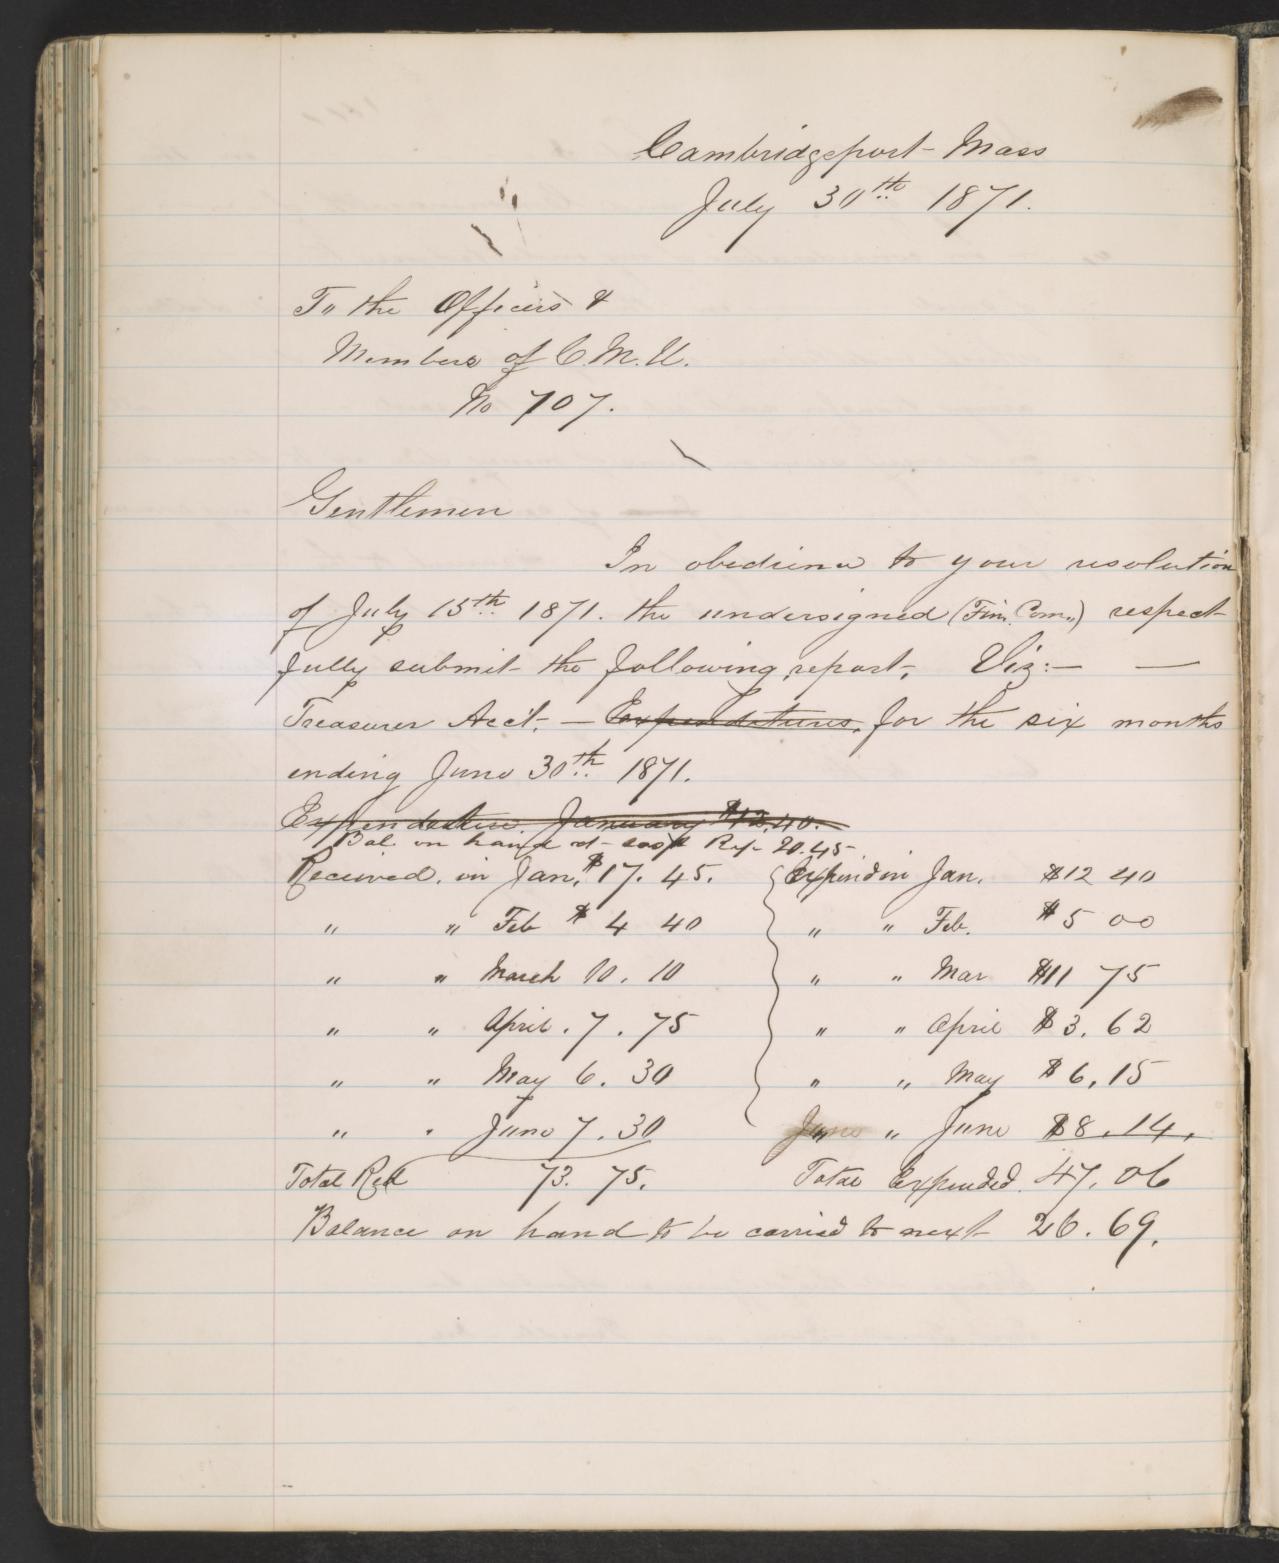 Cambridgeport Mass
July 30th 1871.
To the Officers &
Members of C. M. U.
No 707.
Gentlemen
In obedience to your resolution
of July 15th 1871. the undersigned (Fin. Com.) respect
fully submit the following report, Viz:— —
Treasurer Acct. — Expenditures, for the six months
ending June 30th 1871.
Expenditure. January $12.40.
Bal. on hand at last Rep. 20.45
Received. in Jan. $17. 45. Expend in Jan. $12 40
" " Feb $ 4 40 " " Feb. $5 00
" " March 10. 10 " " Mar $11 75
" " April. 7. 75 " " April $3. 62
" " May 6. 30 " " May $6.15
" " June 7. 30 " " June $8. 14.
Total Rec 73. 75. Total Expended. 47. 06
Balance on hand to be carried to next 26. 69.